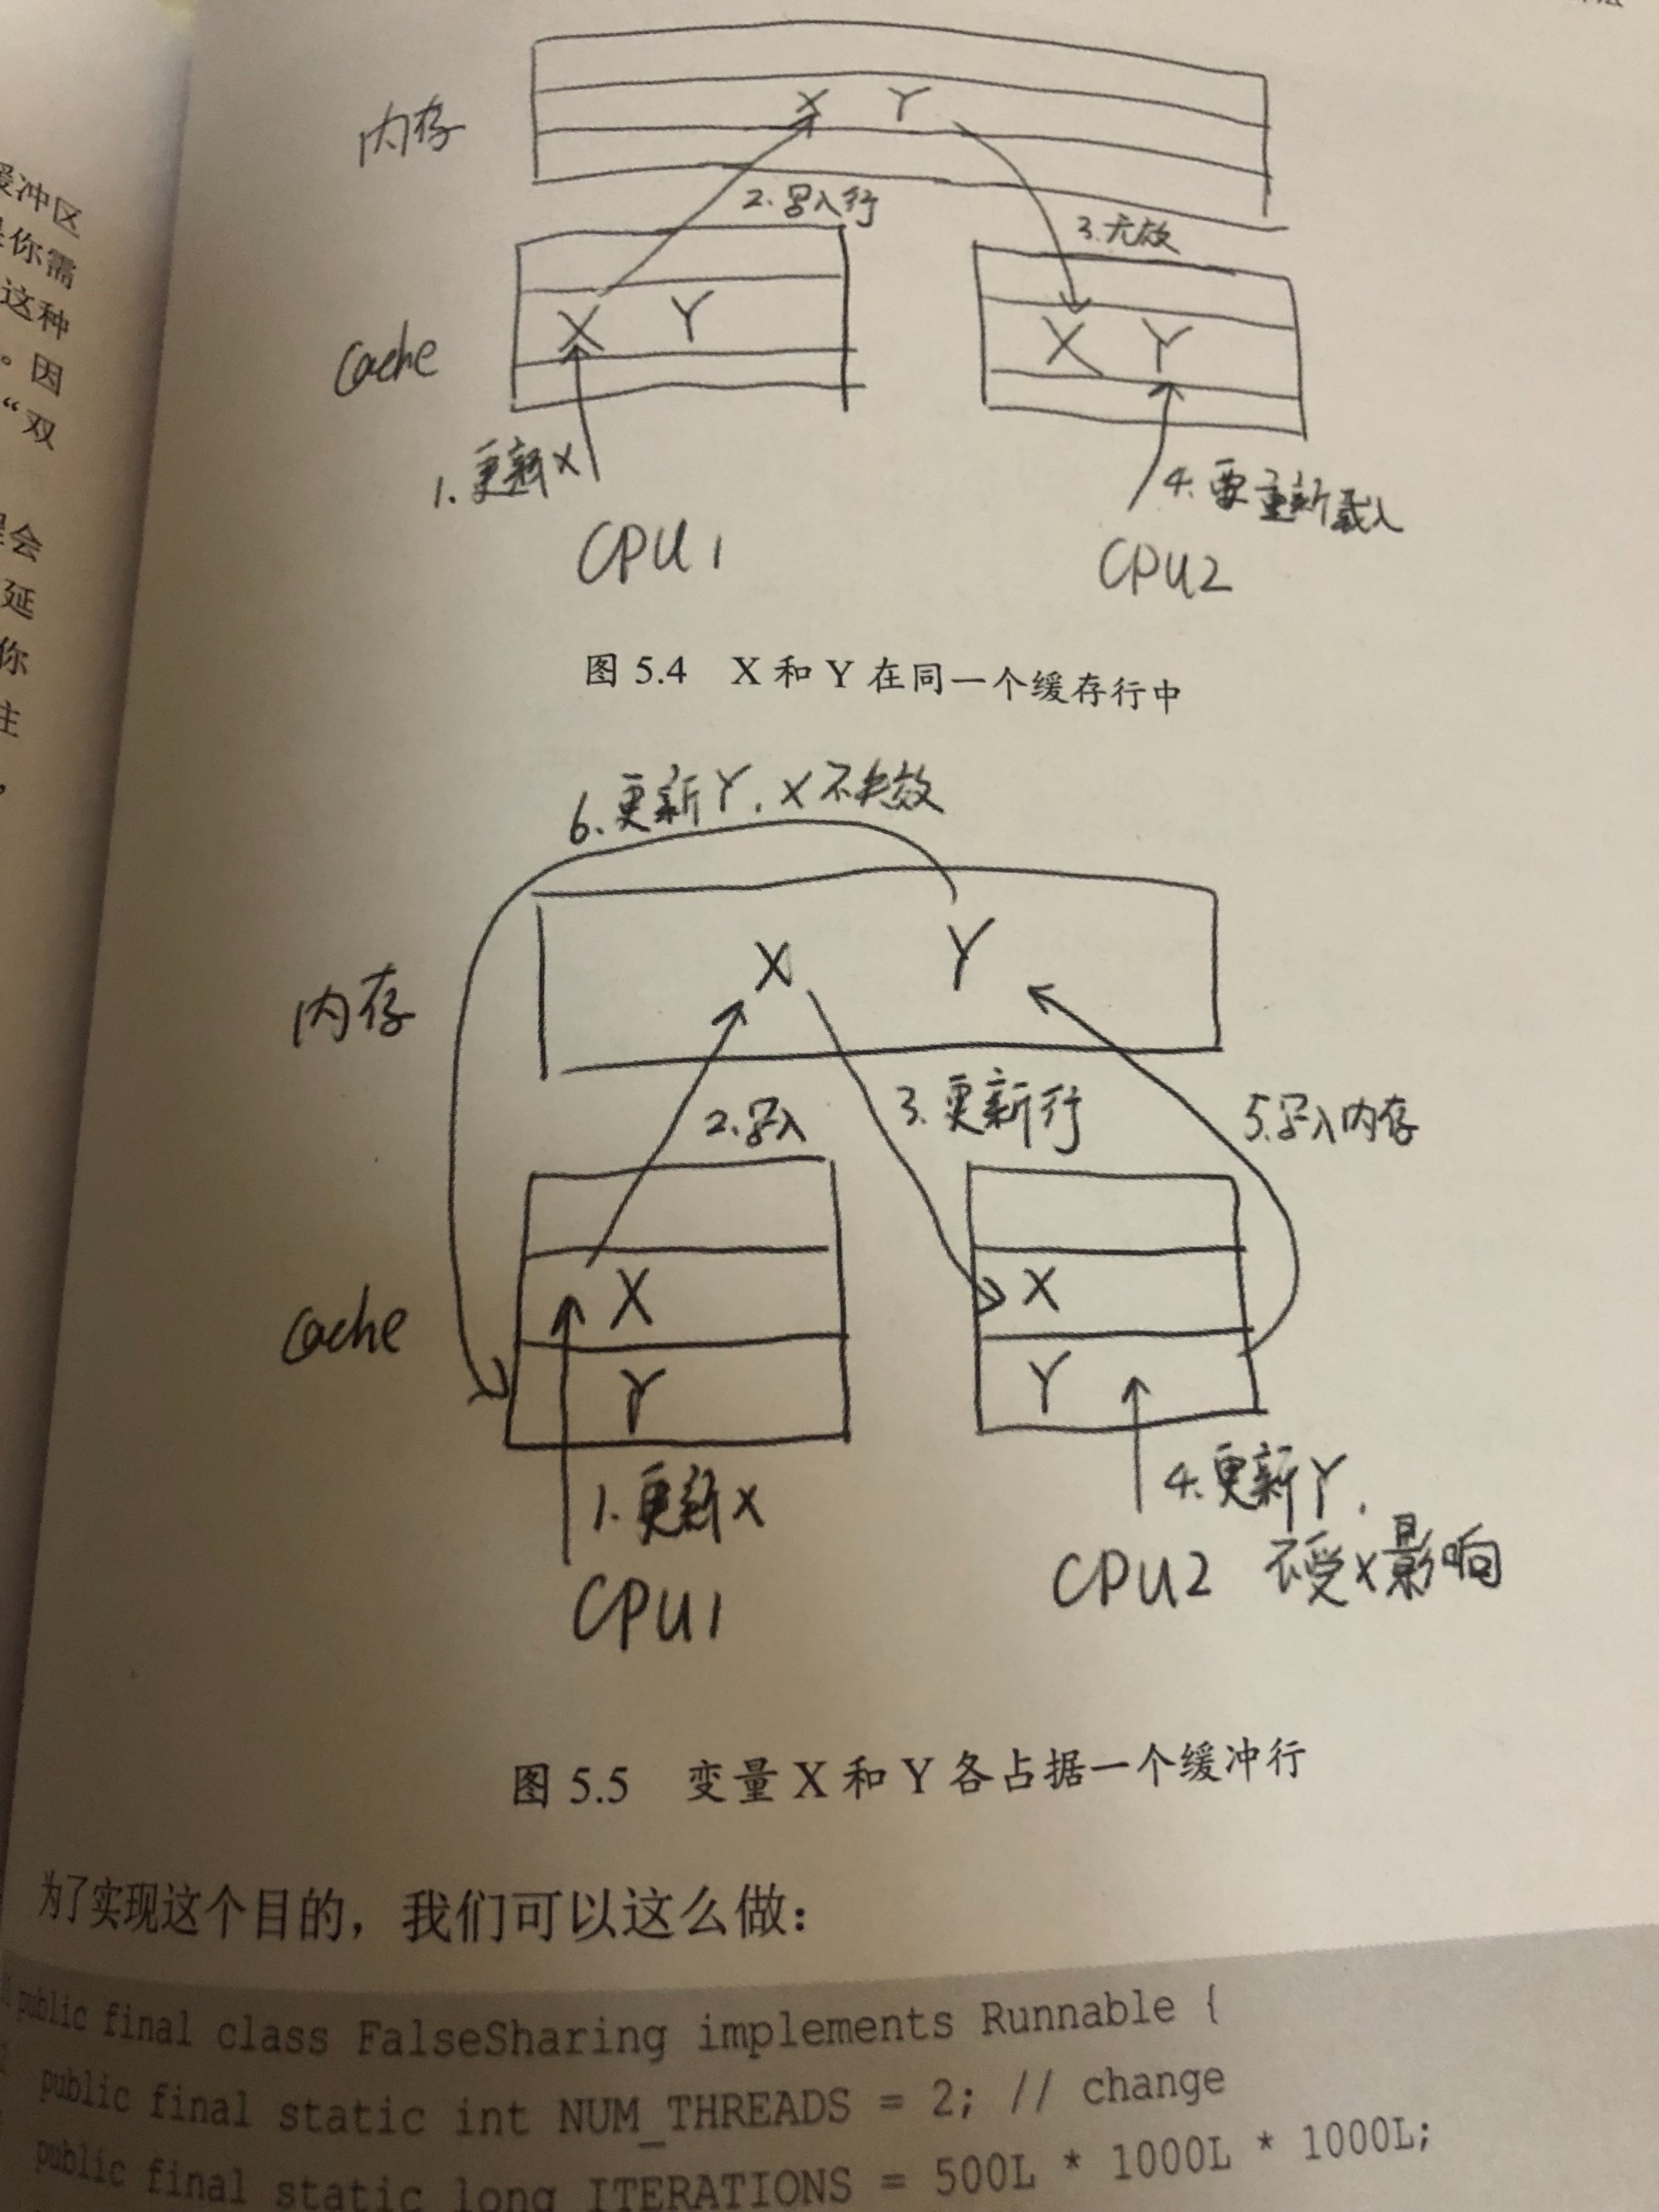 缓冲区
你需
这种
。因
“双
会
延
你
注
，
内存
X Y
2.写入行
3.无效
Cache
X Y
X Y
1.更新X
4.要重新载入
CPU1
CPU2
图 5.4 X 和 Y 在同一个缓存行中
6.更新Y,X不失效
内存
X Y
2.写入
3.更新行
5.写入内存
Cache
X
Y
X
Y
1.更新X
4.更新Y,
CPU1
CPU2 不受X影响
图 5.5 变量 X 和 Y 各占据一个缓冲行
为了实现这个目的，我们可以这么做：
public final class FalseSharing implements Runnable {
public final static int NUM_THREADS = 2; // change
public final static long ITERATIONS = 500L * 1000L * 1000L;